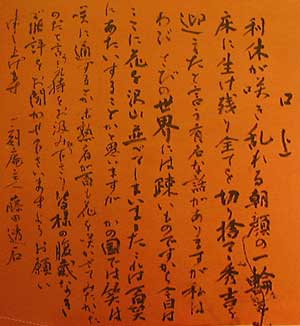 口上
利休が咲き乱れる朝顔の一輪を
床に生け残り全てを切り捨て秀吉を
迎えたと言う有名な話がありますが私は
わびさびの世界には疎いものですから今日は
ここに花を沢山並べてしまいましたこれは百笑
にあたいすることかと思いますがかの国では笑は
咲に通ずるとか未熟者が百の花を咲かせてみたかった
のだと言う心持をお汲み下さり皆様の腹蔵なき
ご批評をお聞かせ下さいますようお願い
申し上げます 庵主人 藤田